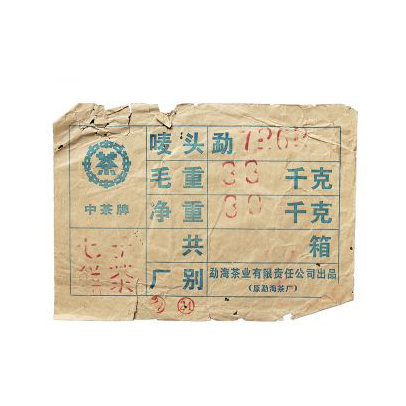 茶
中茶牌
唛头 勐7262
毛重 33 千克
净重 30 千克
共 箱
七子
饼茶
厂别 勐海茶业有限责任公司出品
(原勐海茶厂)